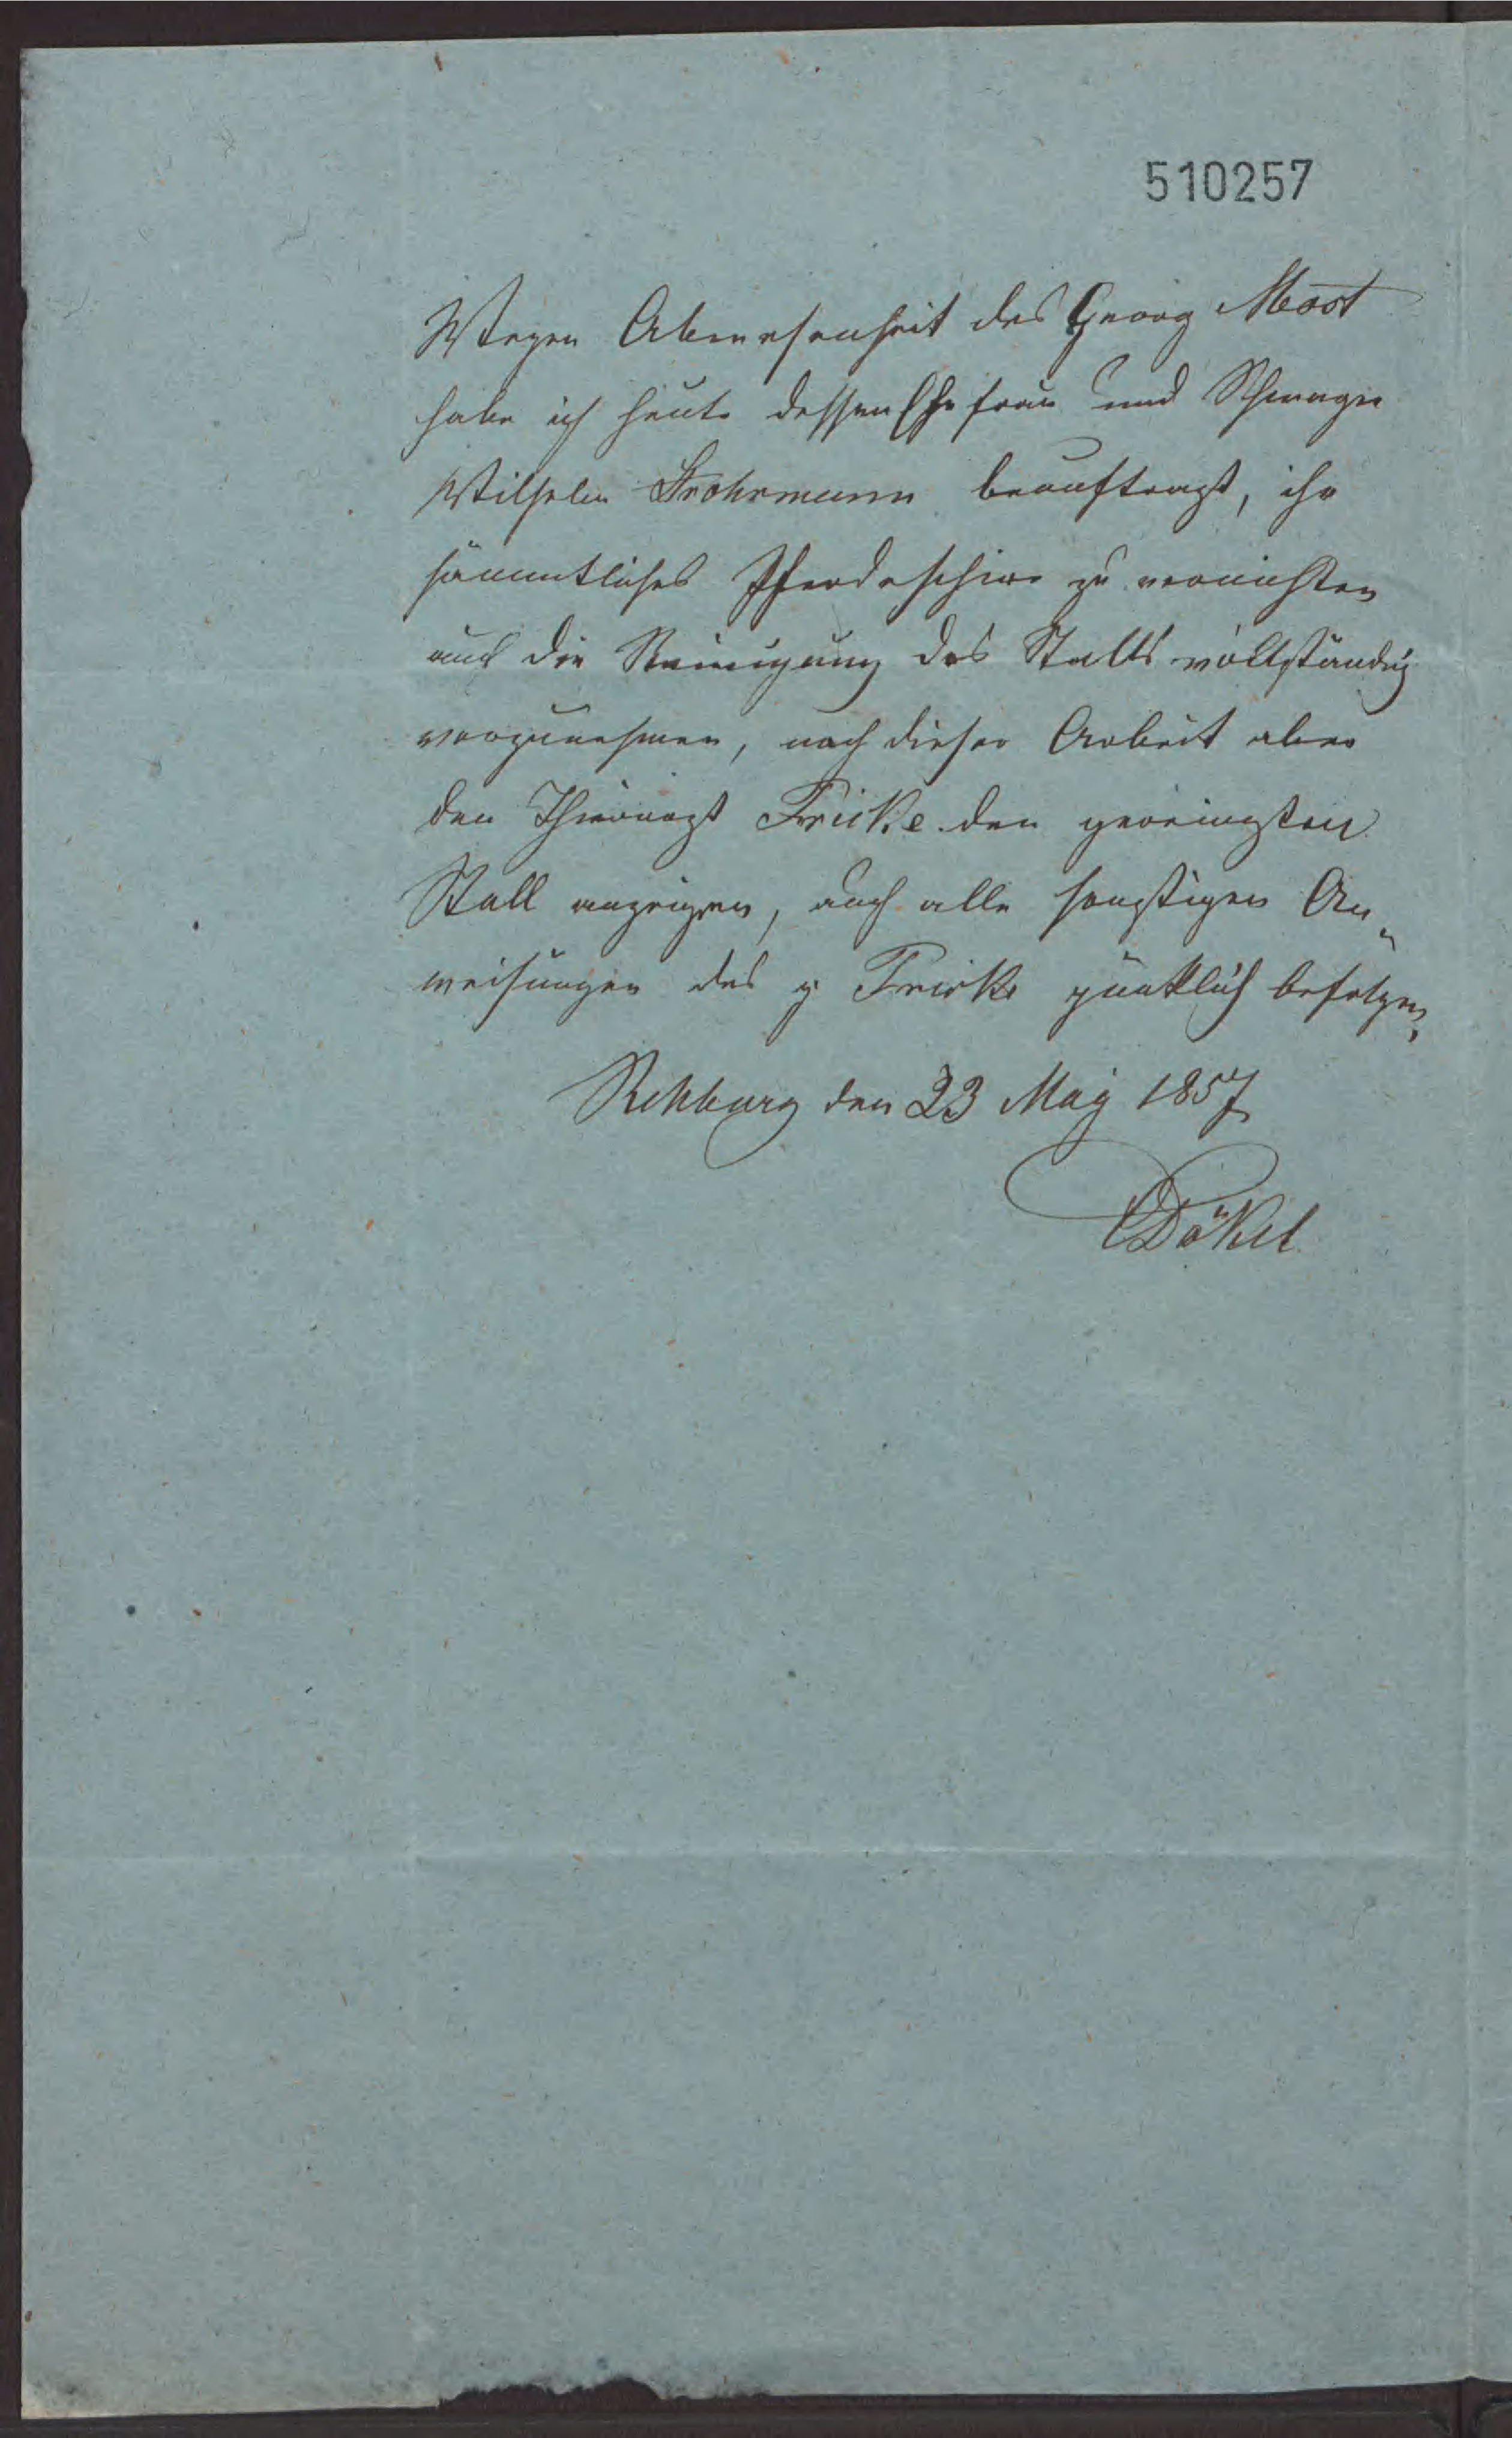 510257
Wegen Abwesenheit des Georg Most
habe ich heute dessen Ehefrau und Schwager
Wilhelm Frohrmann beauftragt, ihr
sämmtliches Pferdeschirr zu vernichten
auch die Reinigung des Stalls vollständig
vorzunehmen, nach dieser Arbeit aber
den Thierarzt Fricke den gereinigten
Stall anzeigen, auch alle sonstigen An„
weisungen des p Fricke pünktlich befolgen,
Rehburg den 23 May 1857
Dökel